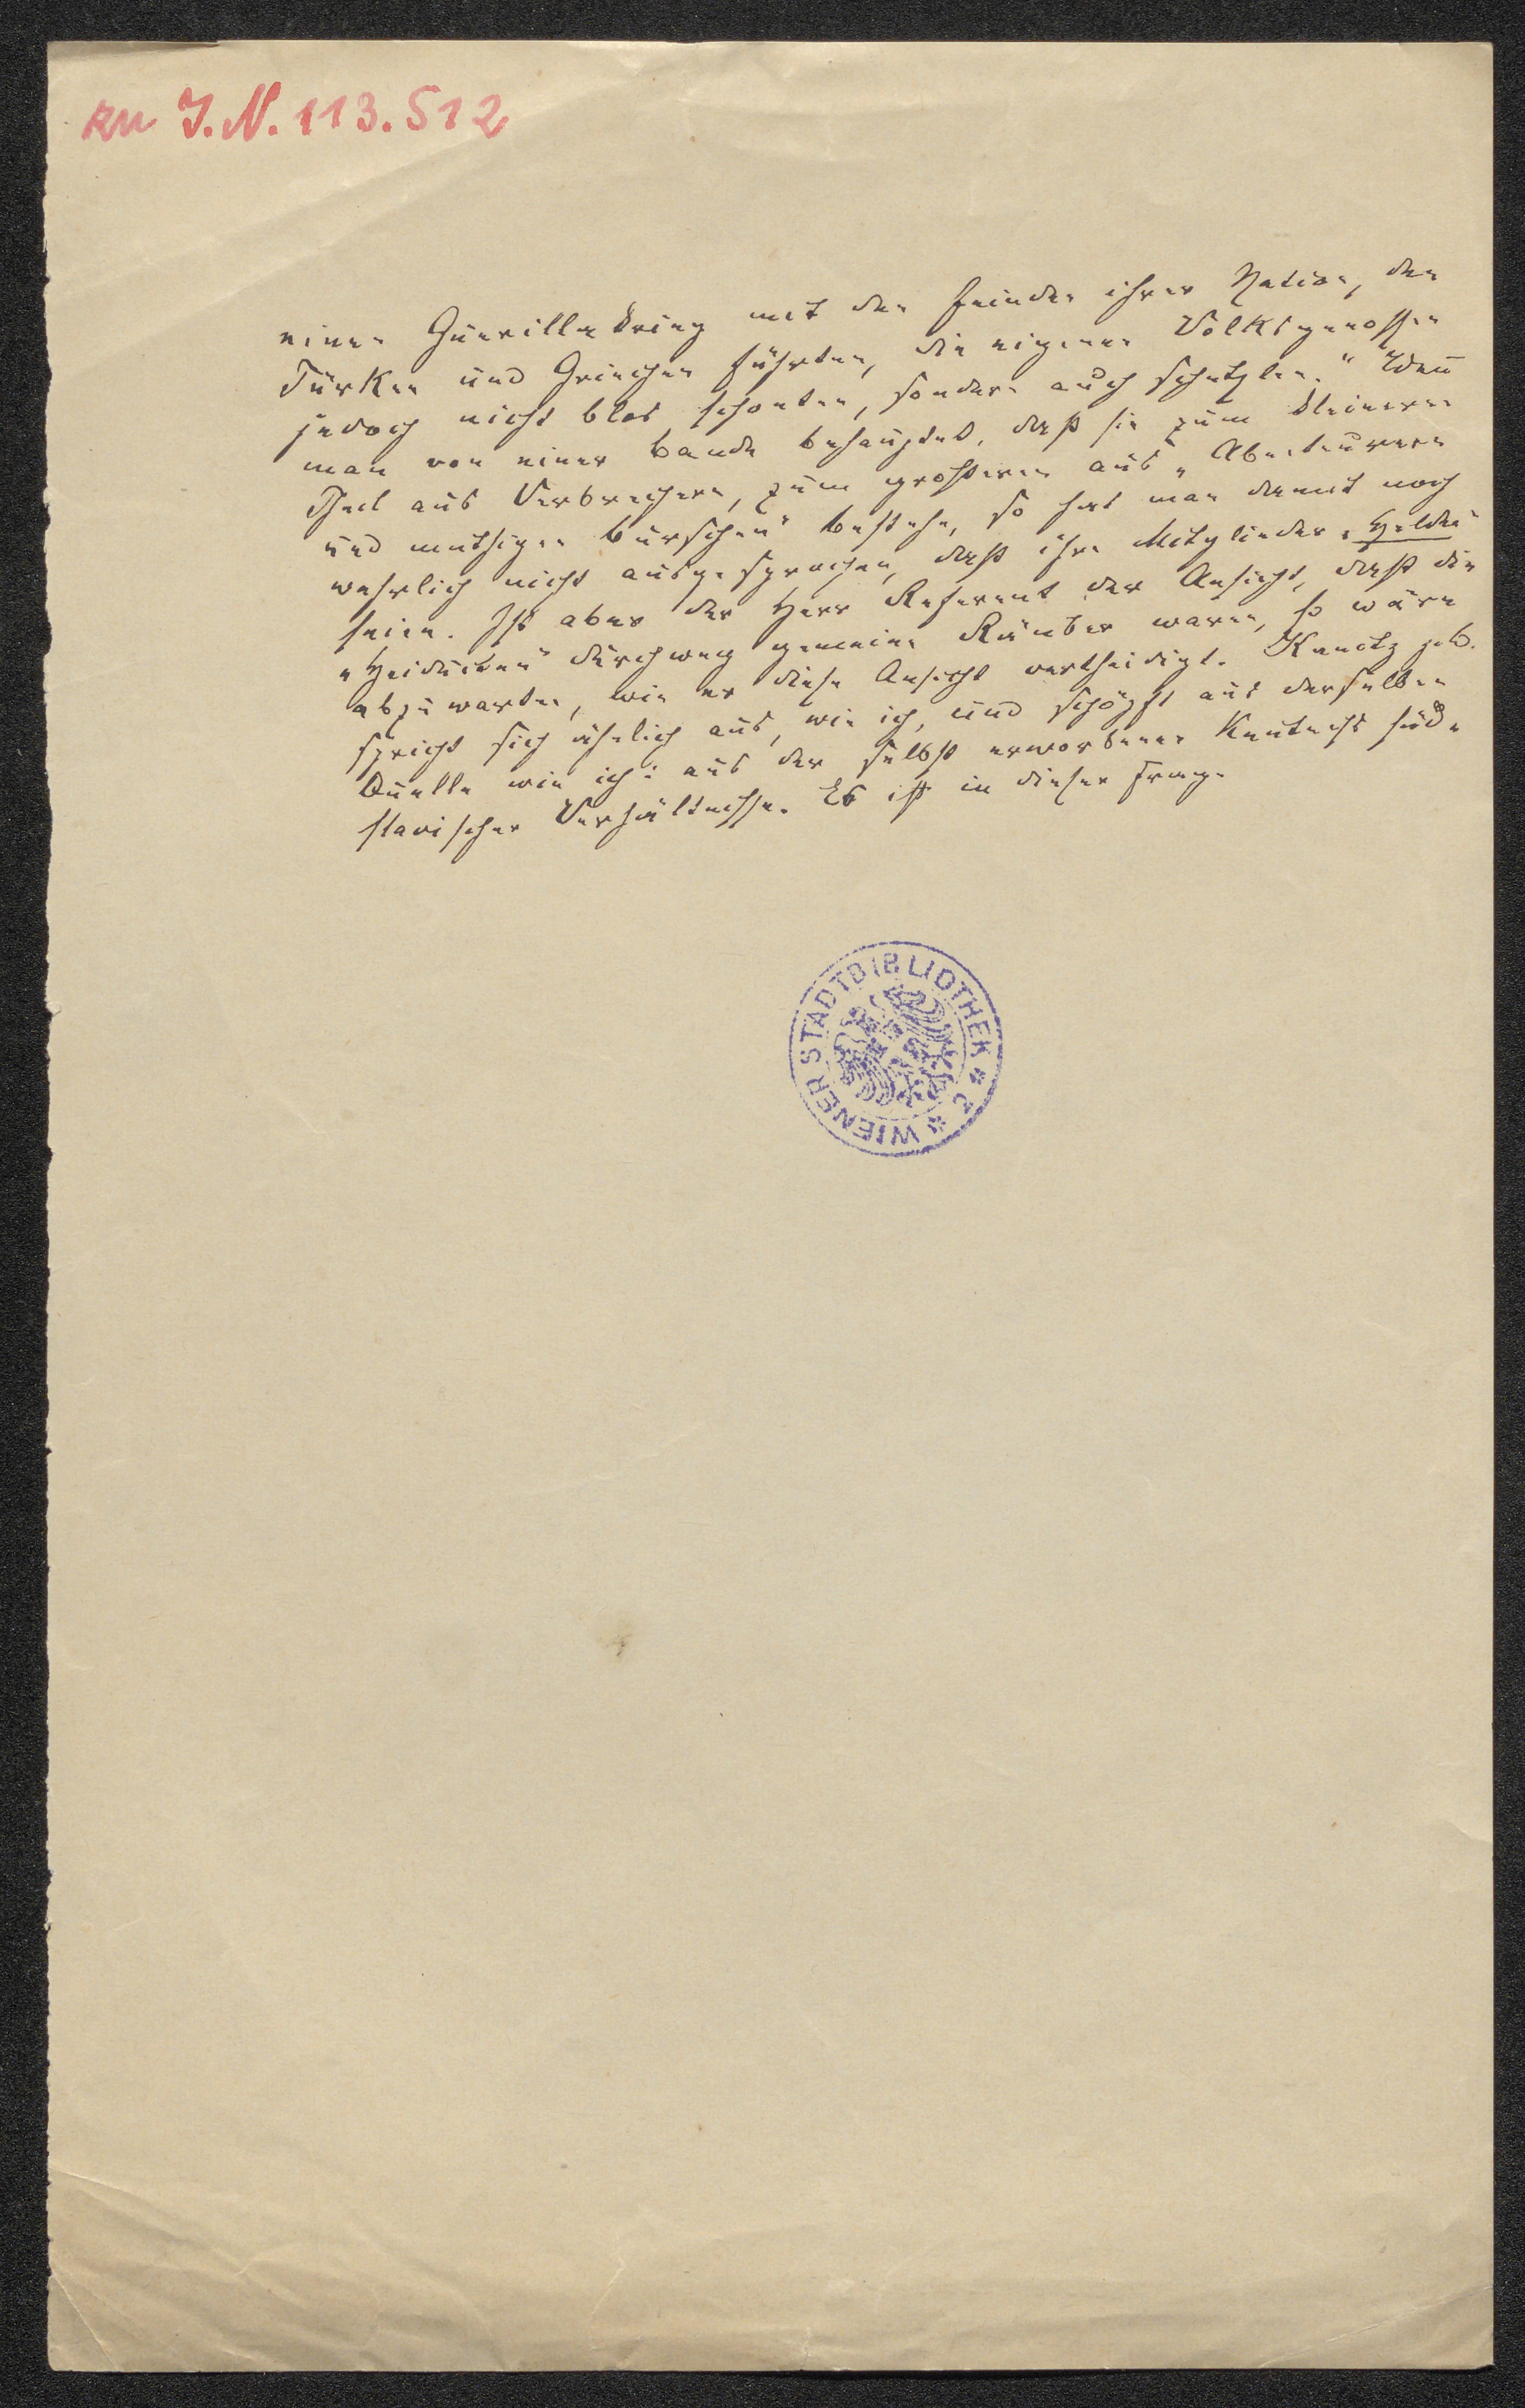 zu J.N. 113.512
einen Guerillakrieg mit den Feinden ihrer Nation, den
Türken und Griechen führten, die eigenen Volksgenossen
jedoch nicht blos schonten, sondern auch schützten." Wenn
man von einer Bande behauptet, daß sie zum kleineren
Theil aus Verbrechern, zum größeren aus „Abenteurern
und muthigen Burschen" bestehe, so hat man damit noch
wahrlich nicht ausgesprochen, daß ihre Mitglieder „Helden"
seien. Ist aber der Herr Referent der Ansicht, daß die
„Heiducken" durchweg gemeine Räuber waren, so wäre
abzuwarten, wie er diese Ansicht vertheidigt. Kanitz
spricht sich ähnlich aus, wie ich, und schöpft aus derselben
Quelle wie ich: aus der selbst erworbenen Kenntniß süd-
slavischer Verhältnisse. Es ist in dieser Frage
WIENER STADTBIBLIOTHEK * 2 *